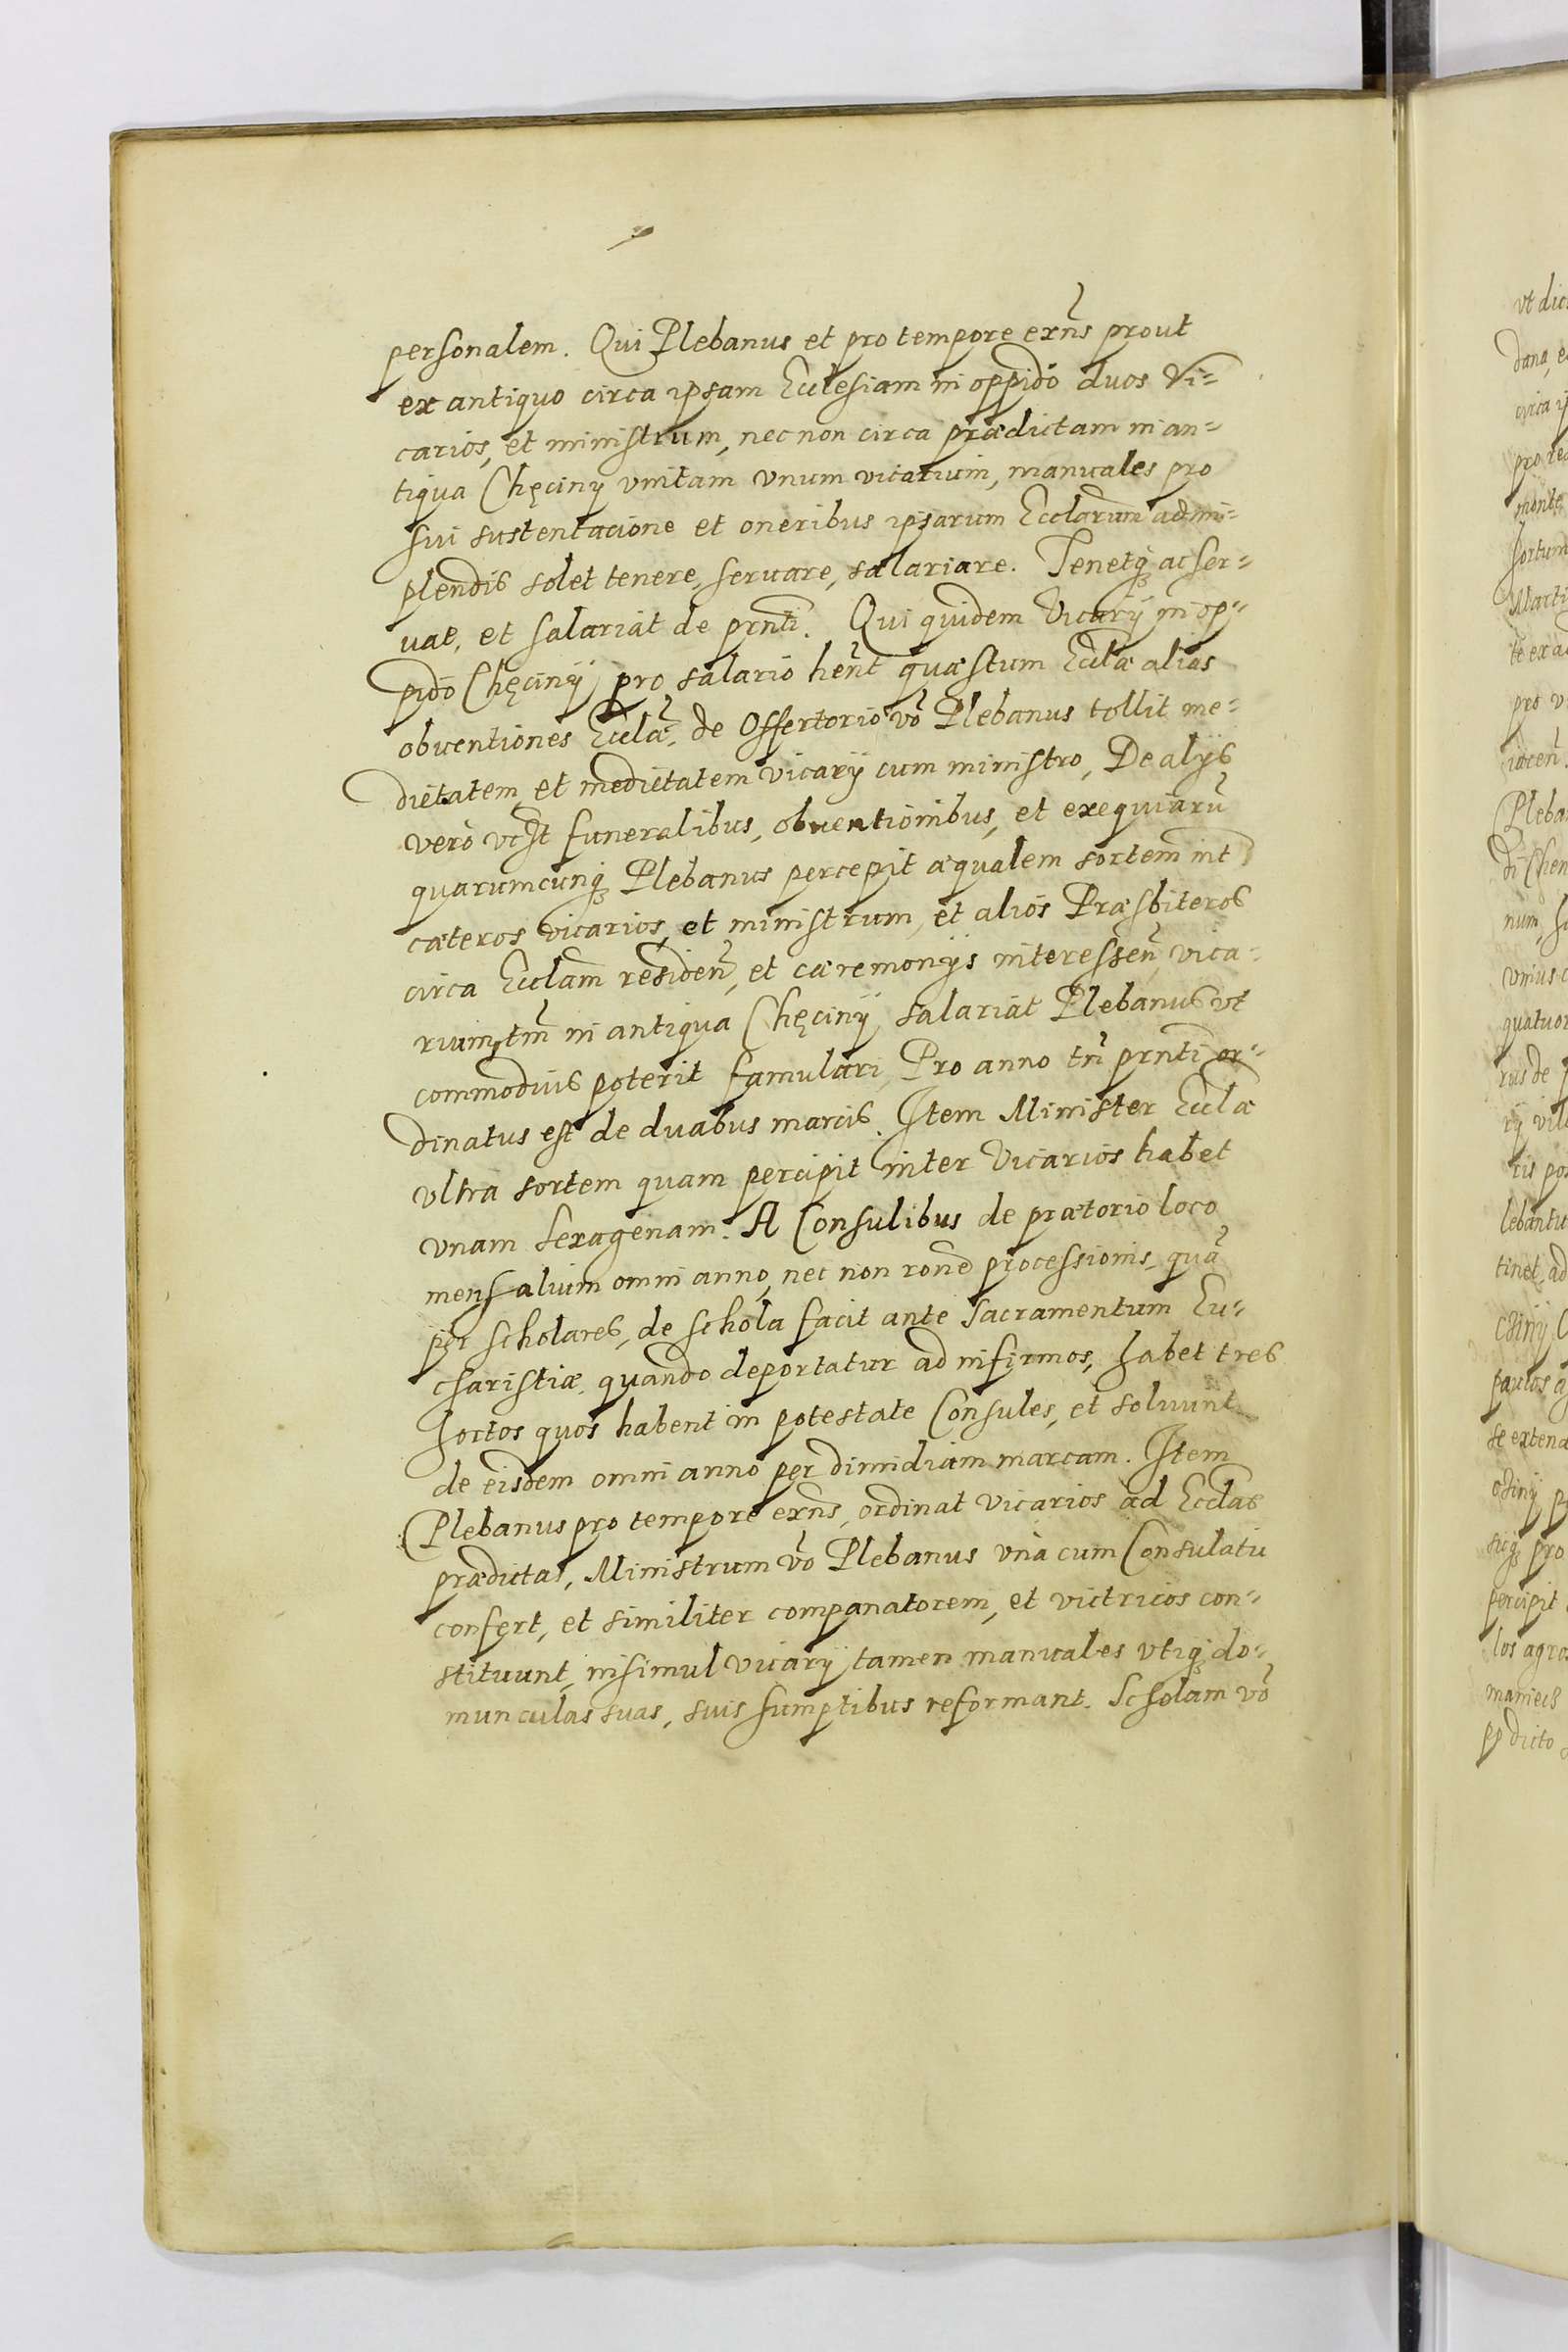 personalem. Qui Plebanus et pro tempore exñs prout
ex antiquo circa ipsam Ecclesiam in oppido duos Vi=
carios, et ministrum, nec non circa prædictam in an=
tiqua Chęciny vnitam vnum vicarium, manuales pro
sui sustentacione et oneribus ipsarum Ecclarum adim=
plendis solet tenere, seruare, salariare. Tenetq́ ac ser=
uat, et salariat de prnti. Qui quidem Vicarij in op=
pido Chęcinÿ pro salario hent quæstum Ecclæ alias
obuentiones Ecclæ, de Offertorio vo Plebanus tollit me=
dietatem et medietatem vicarij cum ministro, De alijs
vero vt st funeralibus, obuentionibus, et exequiarũ
quarumcunq́ Plebanus percepit æqualem sortem int
cæteros vicarios, et ministrum, et alios Præsbiteros
circa Ecclam residen, et cæremonijs interessen, vica=
rium, tm in antiqua Chęcinÿ salariat Plebanus vt
commodius poterit famulari, Pro anno tñ prnti or=
dinatus est de duabus marcis. Item Minister Ecclæ
vltra sortem quam percipit inter Vicarios habet
vnam sexagenam. A Consulibus de prætorio loco
mensalium omni anno, nec non rone processionis, quã
per scholares, de schola facit ante Sacramentum Eu=
charistiæ, quando deportatur ad infirmos, habet tres
hortos quos habent in potestate Consules, et soluunt
de eisdem omni anno per dimidiam marcam. Item
Plebanus pro tempore exñs, ordinat vicarios ad Ecclas
prædictas, Ministrum vo Plebanus vnà cum Consulatu
confert, et similiter companatorem, et victricos con=
stituunt, insimul vicarij tamen manuales vtiq́ do=
munculas suas, suis sumptibus reformant. Scholam vo
vt dic
dana, e
circa ip
pro
monte
hortum
Marti
te ex a
pro v
iacen
Pleba
num,
vnius
quatuor
rus de
rij vil
cis pos
lebantu
tinet, ad
paulos
se extend
percipit
los agros
maniecz
dicto